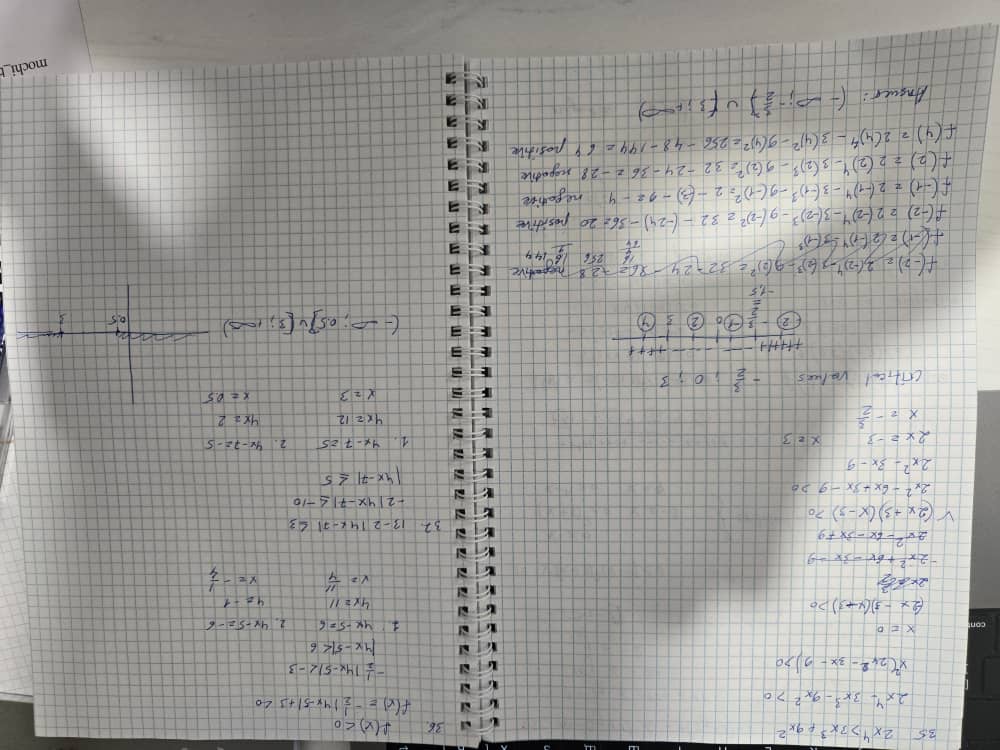 35 2x⁴ > 3x³ + 9x²
2x⁴ - 3x³ - 9x² > 0
x²(2x² - 3x - 9) > 0
x = 0
(2x - 3)(x + 3) > 0
2x² + 6x - 3x - 9
2x² - 6x - 3x + 9
V (2x + 3)(x - 3) > 0
2x² - 6x + 3x - 9 > 0
2x² - 3x - 9
2x = -3 x = 3
x = -3/2
critical values -3/2 ; 0 ; 3
++++ ---- ---- ++++
-2 -3/2 -1 0 2 3 4
= -1,5
f(-2) = 2(-2)⁴ - 3(2)³ - 9(2)² = 32 - 24 - 36 = -28 negative
f(-1) = 2(-1)⁴ - 3(-1)³
f(-2) = 2(-2)⁴ - 3(-2)³ - 9(-2)² = 32 - (-24) - 36 = 20 positive
f(-1) = 2(-1)⁴ - 3(-1)³ - 9(-1)² = 2 - (3) - 9 = -4 negative
f(2) = 2(2)⁴ - 3(2)³ - 9(2)² = 32 - 24 - 36 = -28 negative
f(4) = 2(4)⁴ - 3(4)² - 9(4)² = 256 - 48 - 144 = 64 positive
Answer: (-∞; -3/2] ∪ [3; +∞)
36 f(x) < 0
f(x) = -1/2|4x-5| + 3 < 0
-1/2|4x-5| < -3
|4x-5| < 6
1. 4x-5 = 6 2. 4x-5 = -6
4x = 11 4 = -1
x = 11/4 x = -1/4
37 13 - 2|4x-7| ≤ 3
-2|4x-7| ≤ -10
|4x-7| ≤ 5
1. 4x-7 = 5 2. 4x-7 = -5
4x = 12 4x = 2
x = 3 x = 0.5
(-∞; 0,5] ∪ [3; +∞)
0,5 3
cont